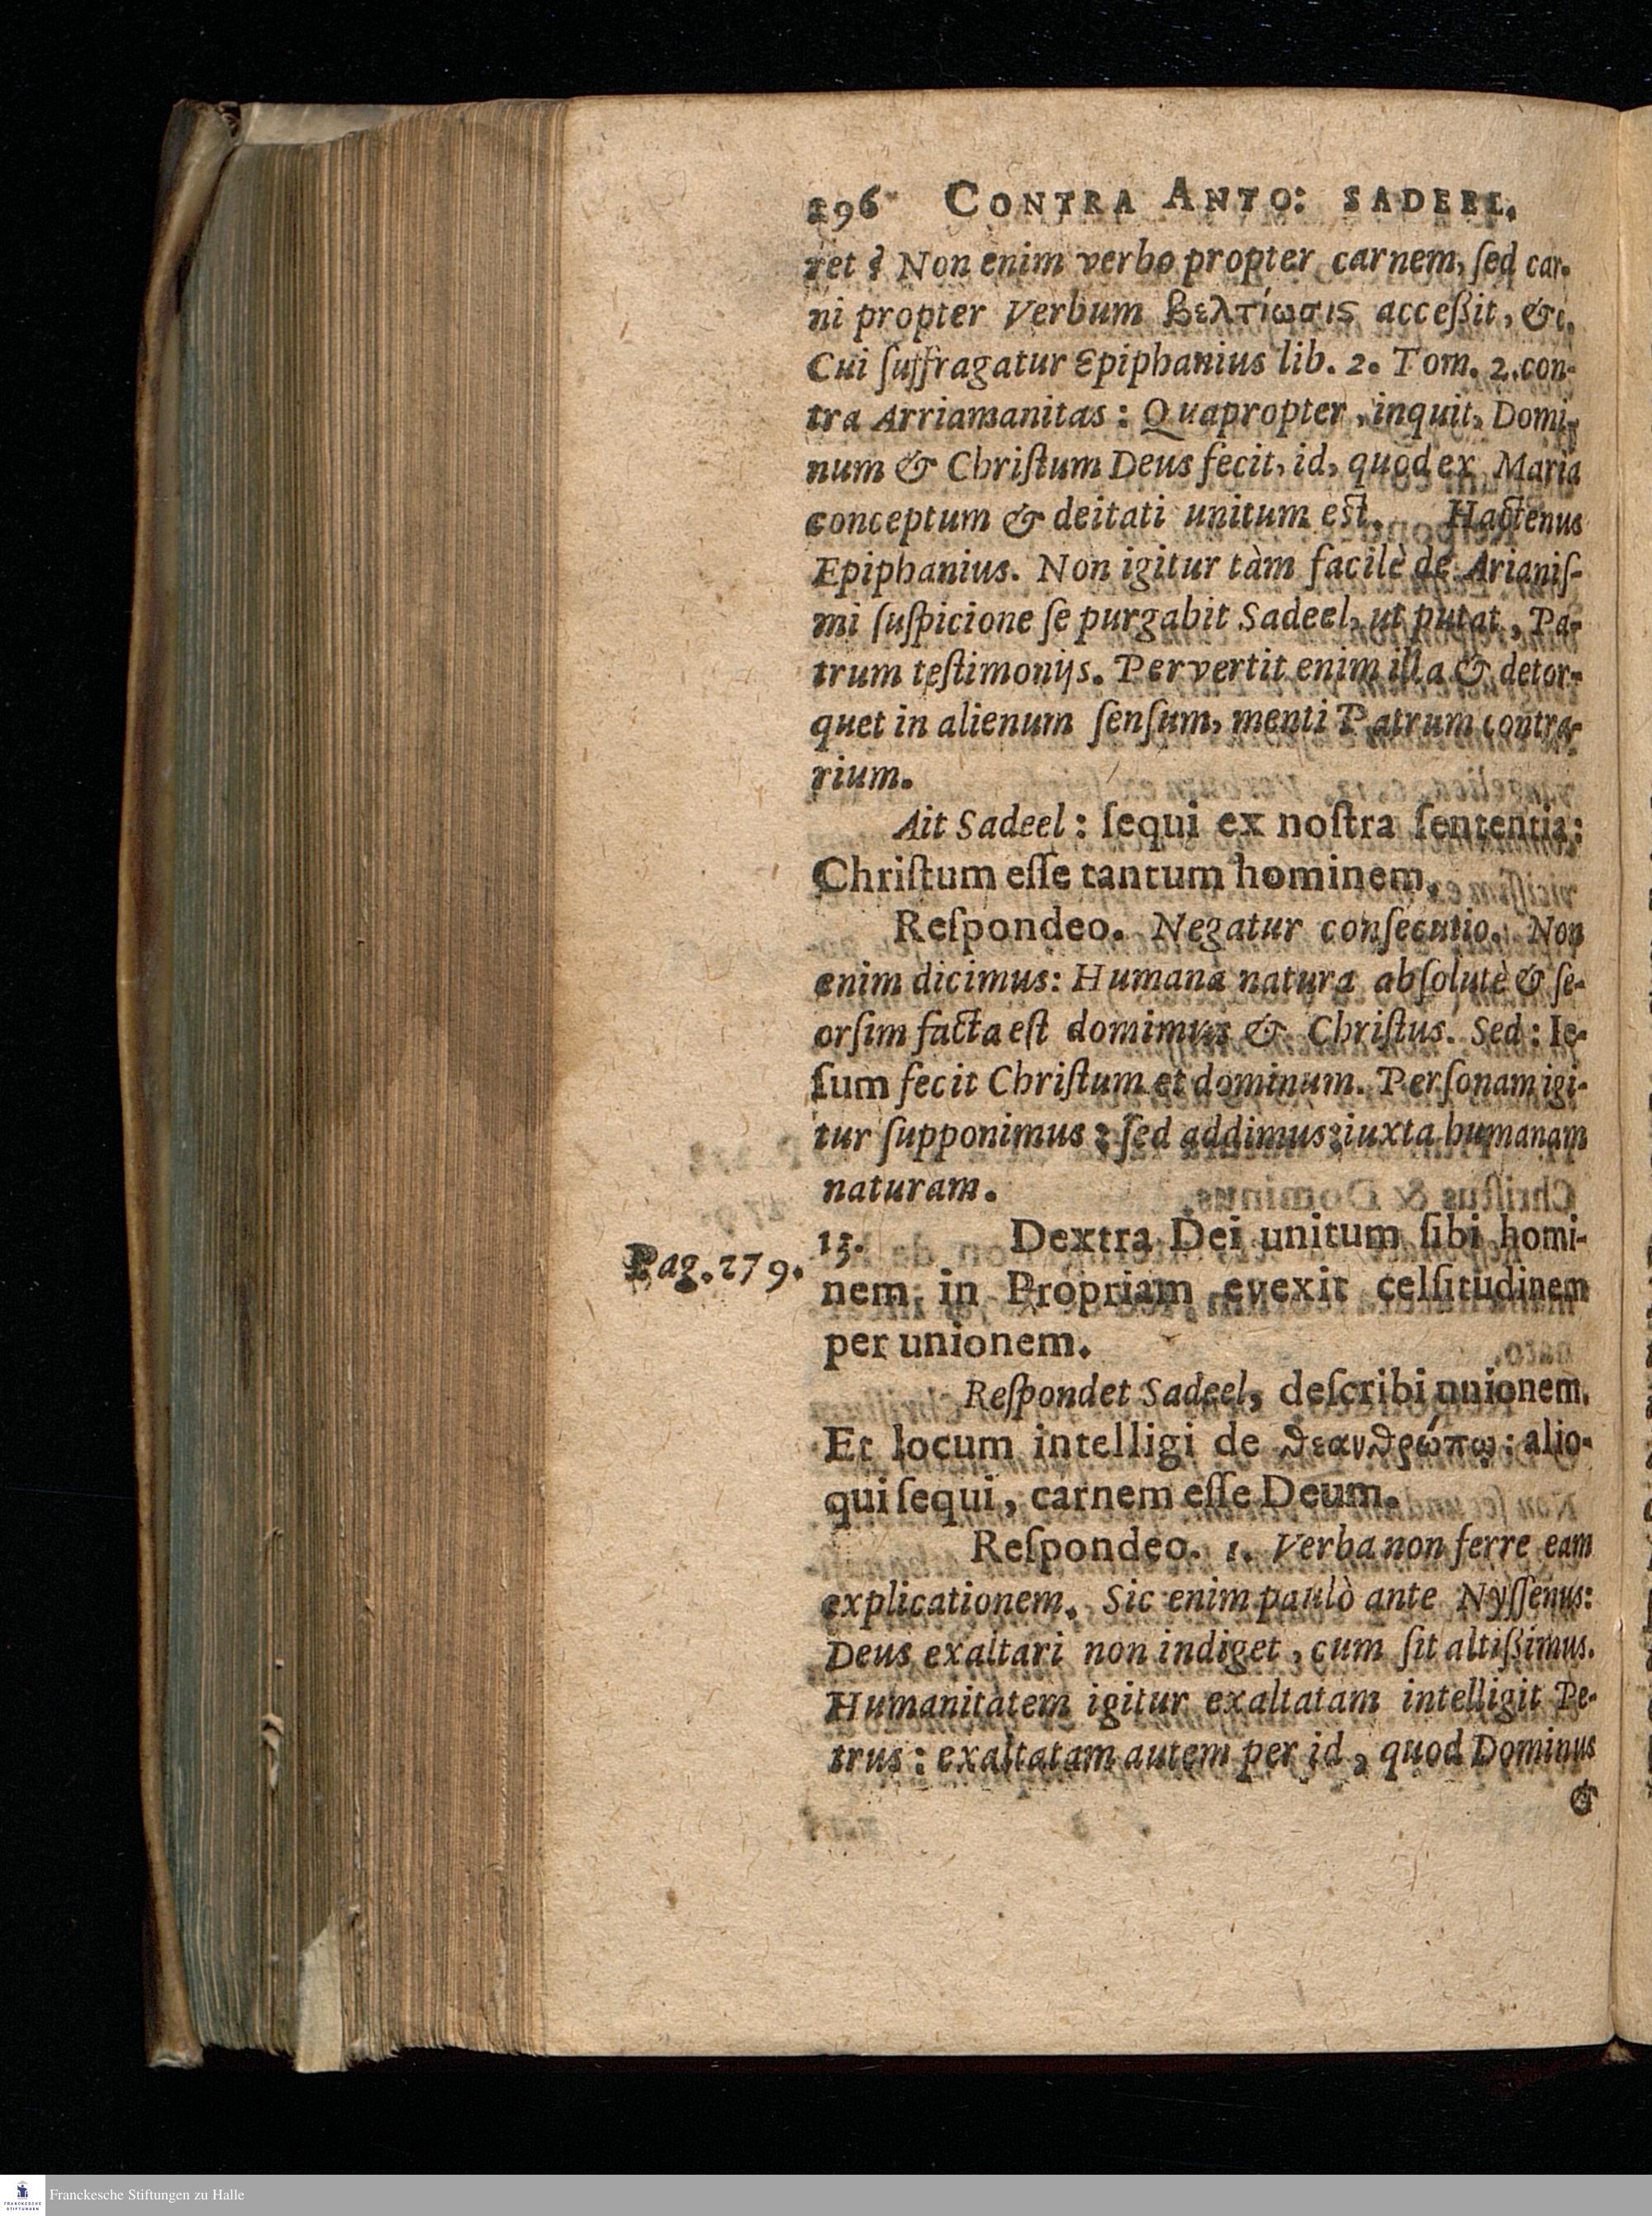 296 CONTRA ANTO: SADEEL.
ret? Non enim verbo propter carnem, ſed car-
ni propter Verbum βελτίωσις acceßit, &c.
Cui ſuffragatur Epiphanius lib. 2. Tom. 2. con-
tra Arriamanitas: Quapropter, inquit, Domi-
num & Chriſtum Deus fecit, id, quod ex Maria
conceptum & deitati unitum eſt. Hactenus
Epiphanius. Non igitur tàm facilè de Arianiſ-
mi ſuſpicione ſe purgabit Sadeel, ut putat, Pa-
trum teſtimonijs. Pervertit enim illa & detor-
quet in alienum ſenſum, menti Patrum contra-
rium.
Ait Sadeel: ſequi ex noſtra ſententia:
Chriſtum eſſe tantum hominem.
Reſpondeo. Negatur conſecutio. Non
enim dicimus: Humana natura abſolutè & ſe-
orſim facta eſt domimus & Chriſtus. Sed: Ie-
ſum fecit Chriſtum et dominum. Perſonam igi-
tur ſupponimus: ſed addimus: iuxta humanam
naturam.
Pag. 279.
15. Dextra Dei unitum ſibi homi-
nem in Propriam evexit celſitudinem
per unionem.
Reſpondet Sadeel, deſcribi unionem.
Et locum intelligi de θεανθρώπῳ: alio-
qui ſequi, carnem eſſe Deum.
Reſpondeo. 1. Verba non ferre eam
explicationem. Sic enim paulò ante Nyſſenus:
Deus exaltari non indiget, cum ſit altißimus.
Humanitatem igitur exaltatam intelligit Pe-
trus: exaltatam autem per id, quod Dominus
&
Franckesche Stiftungen zu Halle